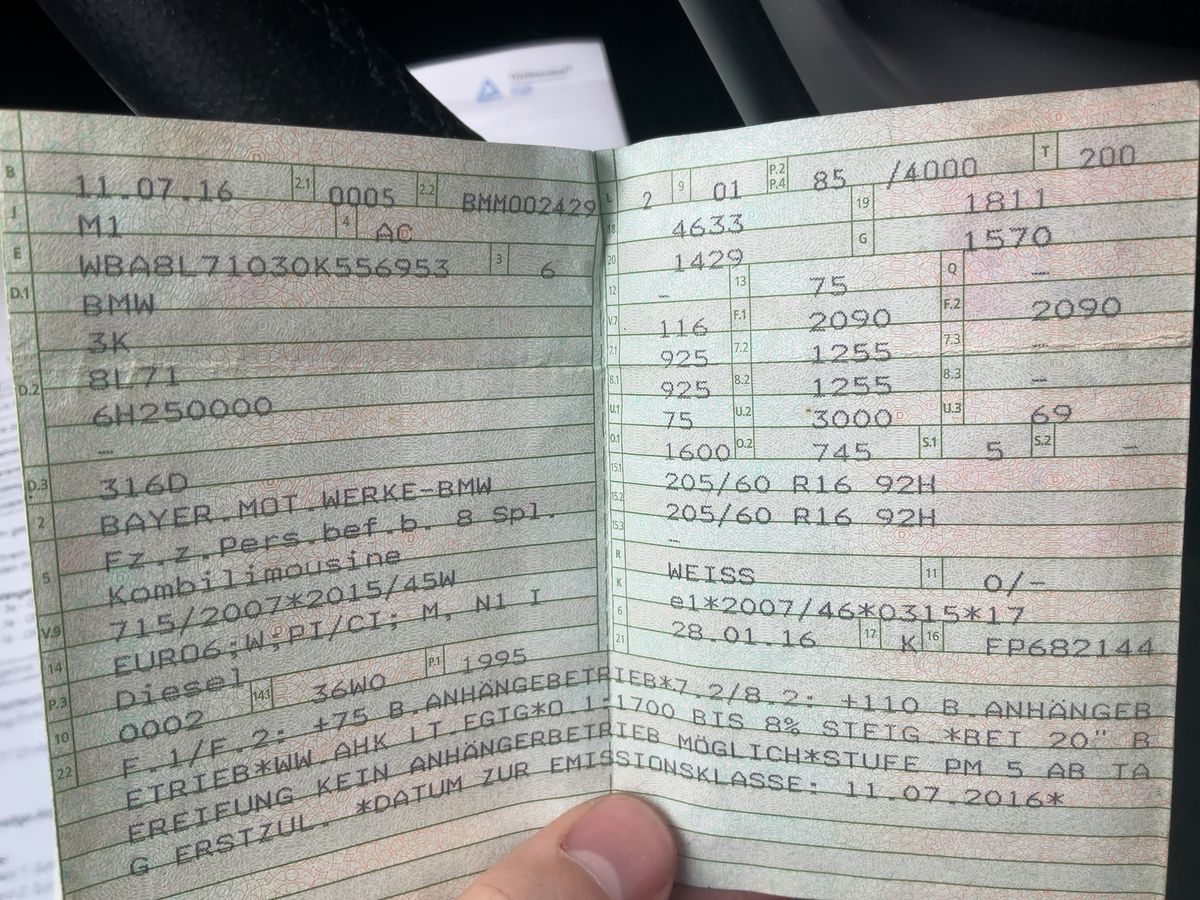 B 11.07.16 2.1 0005 2.2 BMM002429
J M1 4 AC
E WBA8L71030K556953 3 6
D.1 BMW
3K
D.2 8L71
6H250000
–
D.3 316D
2 BAYER.MOT.WERKE-BMW
5 Fz.z.Pers.bef.b. 8 Spl.
Kombilimousine
V.9 715/2007*2015/45W
14 EURO6;W;PI/CI; M, N1 I
P.3 Diesel 14.1 36W0 P.1 1995
10 0002
22 F.1/F.2: +75 B.ANHÄNGEBETRIEB*7.2/8.2: +110 B.ANHÄNGEB
ETRIEB*WW.AHK LT.EGTG*O.1:1700 BIS 8% STEIG.*BEI 20" B
EREIFUNG KEIN ANHÄNGERBETRIEB MÖGLICH*STUFE PM 5 AB TA
G ERSTZUL. *DATUM ZUR EMISSIONSKLASSE: 11.07.2016*
L 2 9 01 P.2 P.4 85 /4000 T 200
18 4633 19 1811
20 1429 G 1570
12 – 13 75 Q –
V.7 116 F.1 2090 F.2 2090
7.1 925 7.2 1255 7.3 –
8.1 925 8.2 1255 8.3 –
U.1 75 U.2 3000 U.3 69
O.1 1600 O.2 745 S.1 5 S.2 –
15.1 205/60 R16 92H
15.2 205/60 R16 92H
15.3 –
R WEISS 11 0/-
K e1*2007/46*0315*17
6 28.01.16 17 K 16 FP682144
21